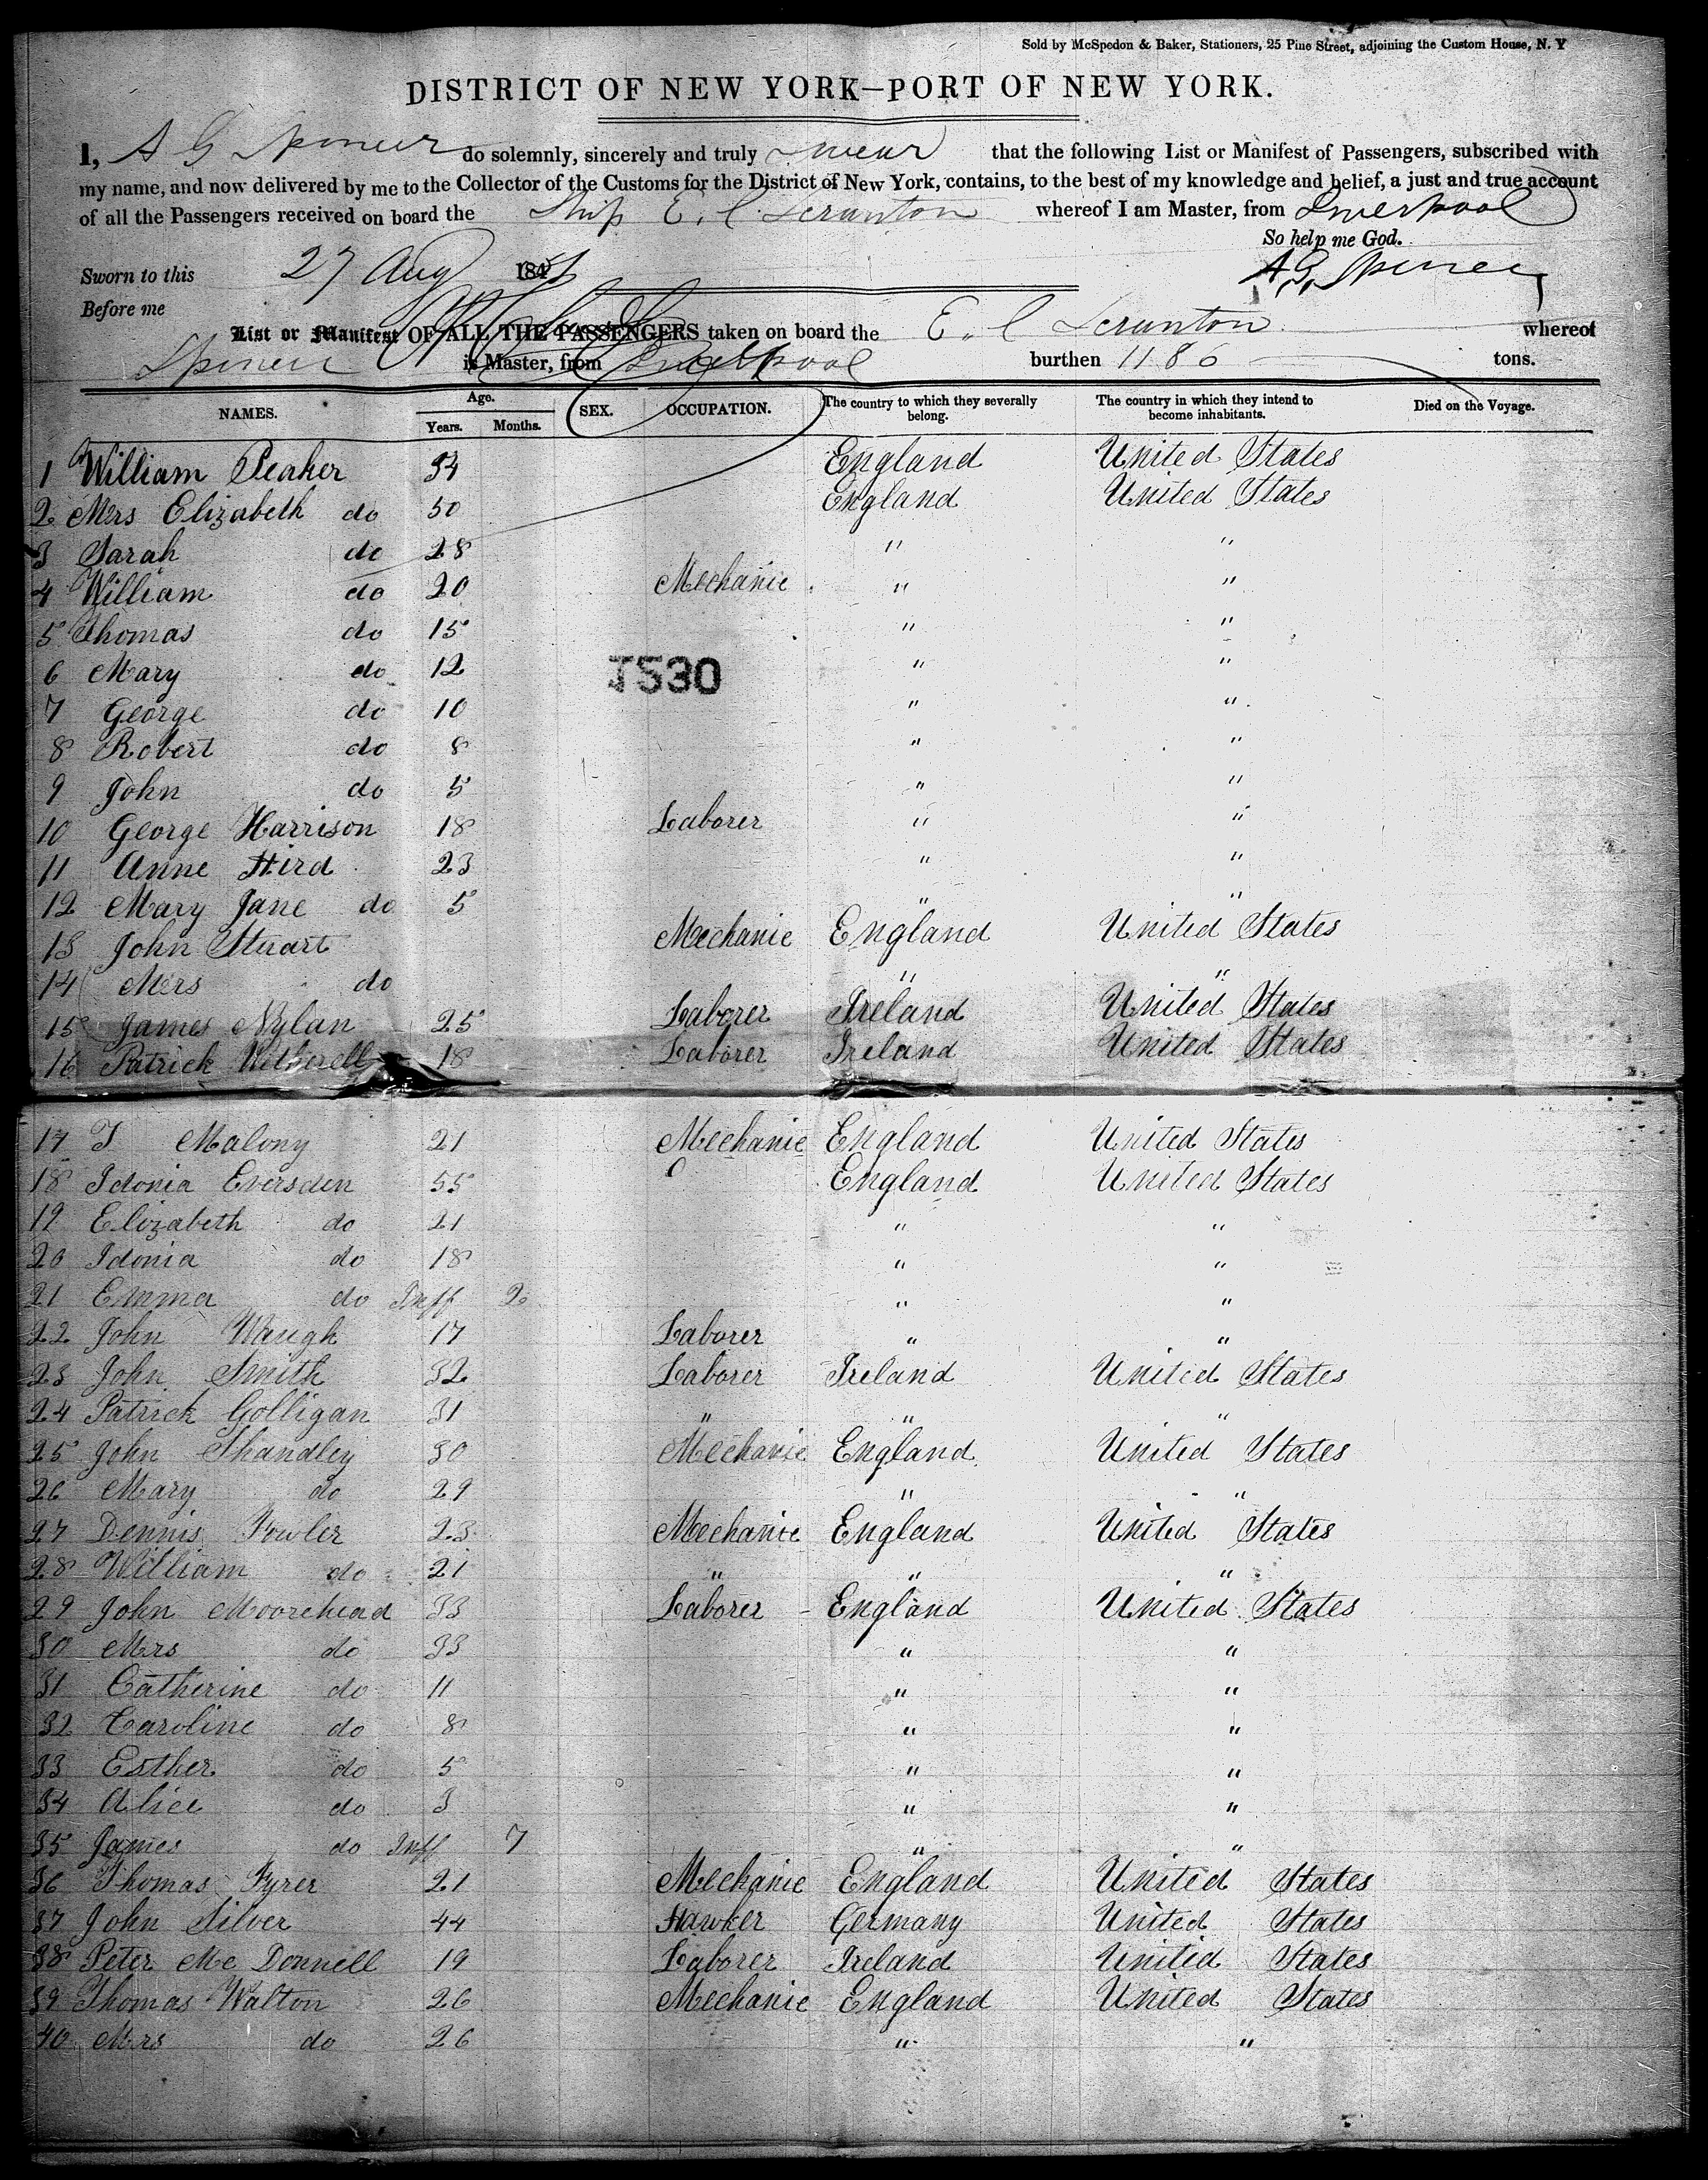 Sold by McSpedon & Baker, Stationers, 25 Pine Street, adjoining the Custom House, N. Y
DISTRICT OF NEW YORK—PORT OF NEW YORK.
I, A G Spencer do solemnly, sincerely and truly swear that the following List or Manifest of Passengers, subscribed with
my name, and now delivered by me to the Collector of the Customs for the District of New York, contains, to the best of my knowledge and belief, a just and true account
of all the Passengers received on board the Ship E. C. Scranton whereof I am Master, from Liverpool
So help me God.
Sworn to this 27 Aug 184
A, G, Spencer
Before me
List or Manifest OF ALL THE PASSENGERS taken on board the E. C Scranton whereof
Spencer is Master, from Liverpool burthen 1186 tons.
NAMES. Age. Years. Months. SEX. OCCUPATION. The country to which they severally belong. The country in which they intend to become inhabitants. Died on the Voyage.
1 William Peaker 54 England United States
2 Mrs Elizabeth do 50 England United States
3 Sarah do 28 " "
4 William do 20 Mechanic " "
5 Thomas do 15 " "
6 Mary do 12 " "
1530
7 George do 10 " "
8 Robert do 8 " "
9 John do 5 " "
10 George Harrison 18 Laborer " "
11 Anne Hird 23 " "
12 Mary Jane do 5 " "
13 John Stuart Mechanic England United States
14 Mrs do " "
15 James Nylan 25 Laborer Ireland United States
16 Patrick 18 Laborer Ireland United States
17 T Malony 21 Mechanic England United States
18 Idonia Eversden 55 England United States
19 Elizabeth do 21 " "
20 Idonia do 18 " "
21 Emma do Inff 2 " "
22 John Waugh 17 Laborer " "
23 John Smith 32 Laborer Ireland United States
24 Patrick Golligan 31 " " "
25 John Shandley 30 Mechanic England United States
26 Mary do 29 " "
27 Dennis Fowler 23 Mechanic England United States
28 William do 21 " " "
29 John Moorehead 33 Laborer England United States
30 Mrs do 33 " "
31 Catherine do 11 " "
32 Caroline do 8 " "
33 Esther do 5 " "
34 Alice do 3 " "
35 James do Inff 7 " "
36 Thomas Fyrer 21 Mechanic England United States
37 John Silver 44 Hawker Germany United States
38 Peter Mc Donnell 19 Laborer Ireland United States
39 Thomas Walton 26 Mechanic England United States
40 Mrs do 26 " "